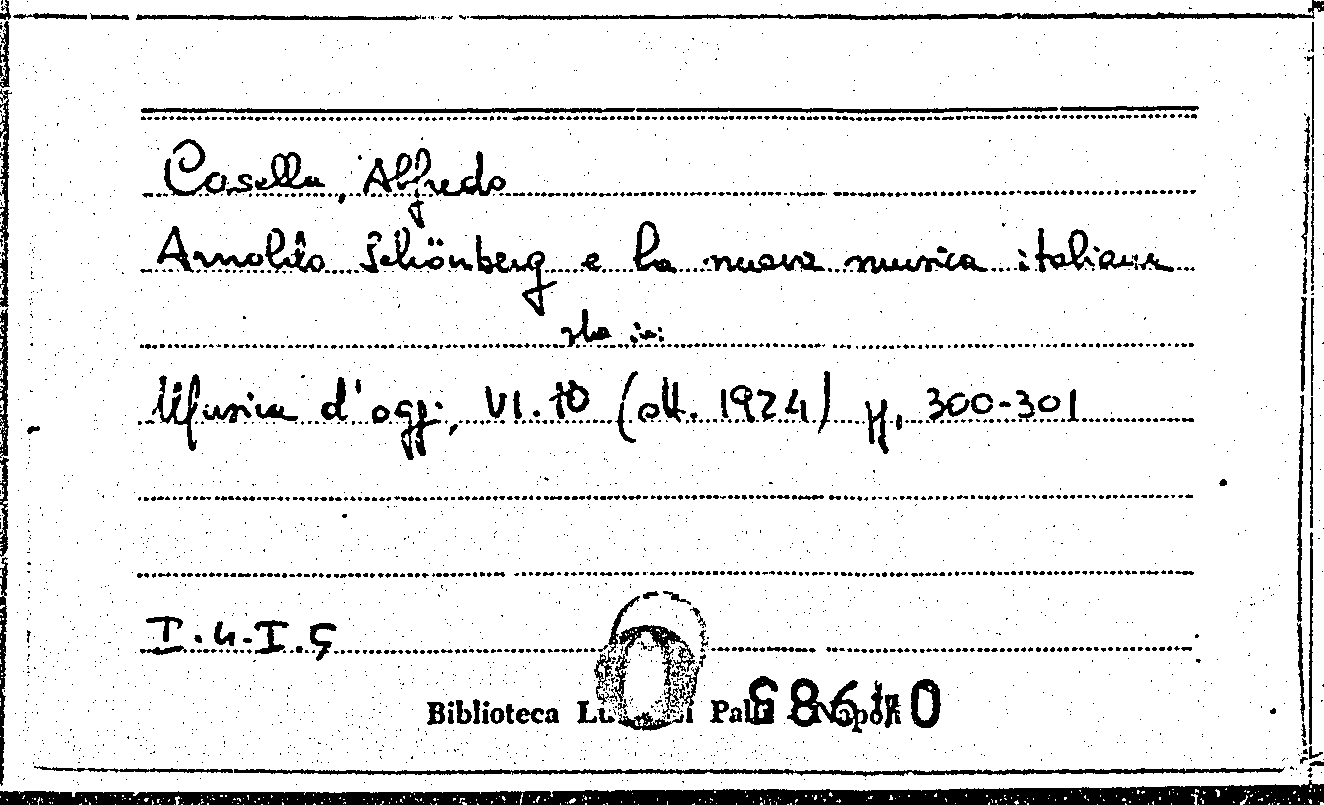 Casella, Alfredo
Arnoldo Schönberg e la nuova musica italiana
sta in:
Musica d'oggi, VI.10 (ott. 1924) pp. 300-301
I.4.I.
Biblioteca Napoli